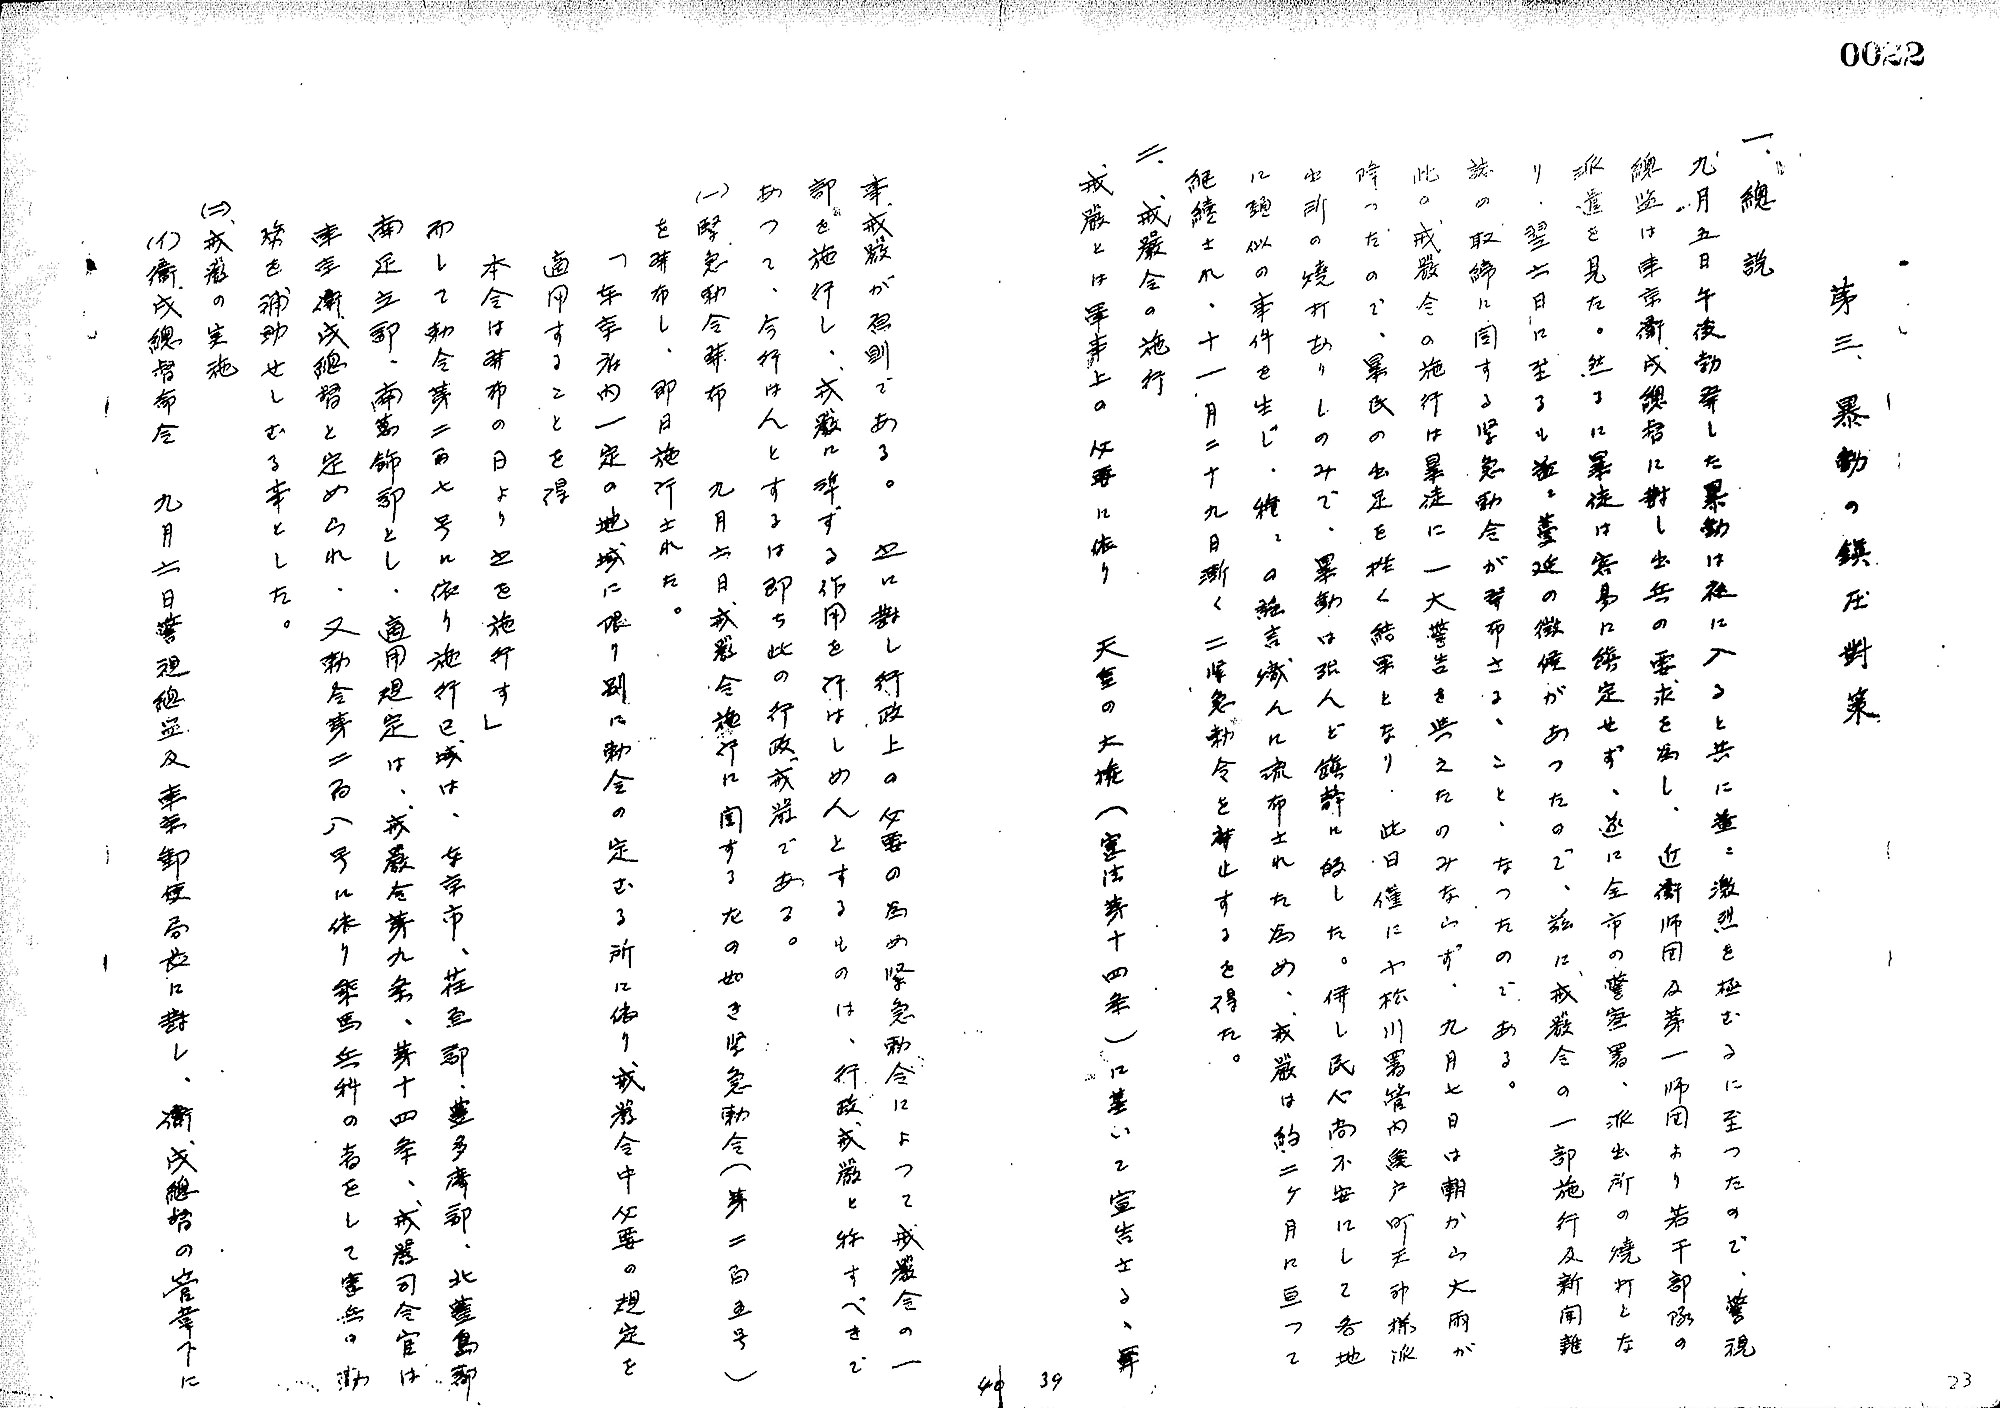 0022
第三、暴動の鎮圧對策
一、總説
九月五日午後勃発した暴動は夜に入ると共に益々激烈を極むるに至つたので、警視
總監は東京衞戍總督に對し出兵の要求を為し、近衞師団及第一師団より若干部隊の
派遣を見た。然るに暴徒は容易に鎮定せず、遂に全市の警察署、派出所の焼打とな
り、翌六日に至るも益々蔓延の徴候があつたので、茲に戒嚴令の一部施行及新聞雑
誌の取締に関する緊急勅令が発布さるゝこと、なつたのである。
此の戒嚴令の施行は暴徒に一大警告を與えたのみならず、九月七日は朝から大雨が
降つたので、暴民の出足を挫く結果となり、此日僅に小松川署管内 戸町天神様派
出所の焼打ありしのみで、暴動は殆んど鎮静に帰した。併し民心尚不安にして各地
に類似の事件を生じ、種々の謡言熾んに流布された為め、戒嚴は約二ヶ月に亘つて
継続され、十一月二十九日漸く二緊急勅令を廃止するを得た。
二、戒嚴令の施行
戒嚴とは軍事上の必要に依り 天皇の大権(憲法第十四条)に基いて宣告さる、軍
39
事戒嚴が原則である。 之に對し行政上の必要の為め緊急勅令によつて戒嚴令の一
部を施行し、戒嚴に準ずる作用を行はしめんとするものは、行政戒嚴と称すべきで
あつて、今行はんとするは即ち此の行政戒嚴である。
(一)緊急勅令発布 九月六日戒嚴令施行に関する左の如き緊急勅令(第二百五号)
を発布し、即日施行された。
「東京府内一定の地域に限り別に勅令の定むる所に依り戒嚴令中必要の規定を
適用することを得
本令は発布の日より之を施行す」
而して勅令第二百七号に依り施行区域は、東京市、荏原郡、豊多摩郡、北豊島郡
南足立郡、南葛飾郡とし、適用規定は、戒嚴令第九条、第十四条、戒嚴司令官は
東京衞戍總督と定められ、又勅令第二百八号に依り乗馬兵科の者をして憲兵の勤
務を補助せしむる事とした。
(二)戒嚴の実施
(イ)衞戍總督命令 九月六日警視總監及東京郵便局長に對し、衞戍總督の管掌下に
40
23